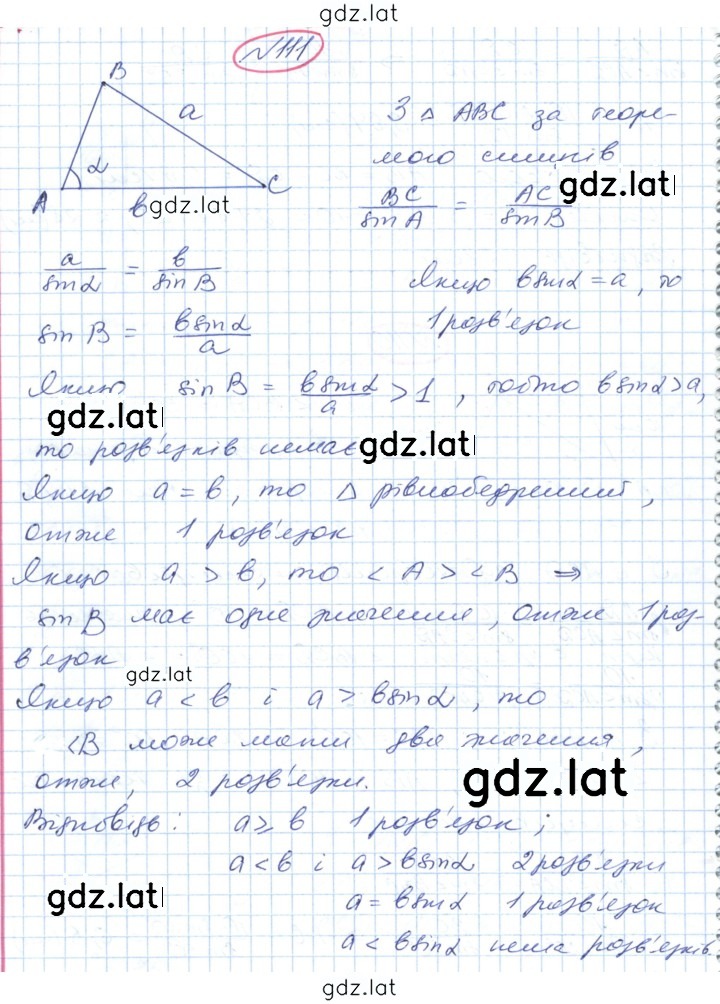 gdz.lat
№111
B
a
α
A
в
C
gdz.lat
З △ ABC за теоре-
мою синусів
gdz.lat
BC/sin A = AC/sin B
a/sin α = в/sin B
Якщо в sin α = a, то
1 розв'язок
sin B = в sin α/a
Якщо sin B = в sin α/a > 1, тобто в sin α > a,
gdz.lat gdz.lat
то розв'язків немає
Якщо a = в, то △ рівнобедрений,
отже 1 розв'язок
Якщо a > в, то < A > < B ⇒
sin B має одне значення, отже 1 роз-
в'язок
gdz.lat
Якщо a < в і a > в sin α, то
<B може мати два значення,
отже, 2 розв'язки.
gdz.lat
Відповідь: a ≥ в 1 розв'язок;
a < в і a > в sin α 2 розв'язки
gdz.lat
a = в sin α 1 розв'язок
a < в sin α нема розв'язків.
gdz.lat